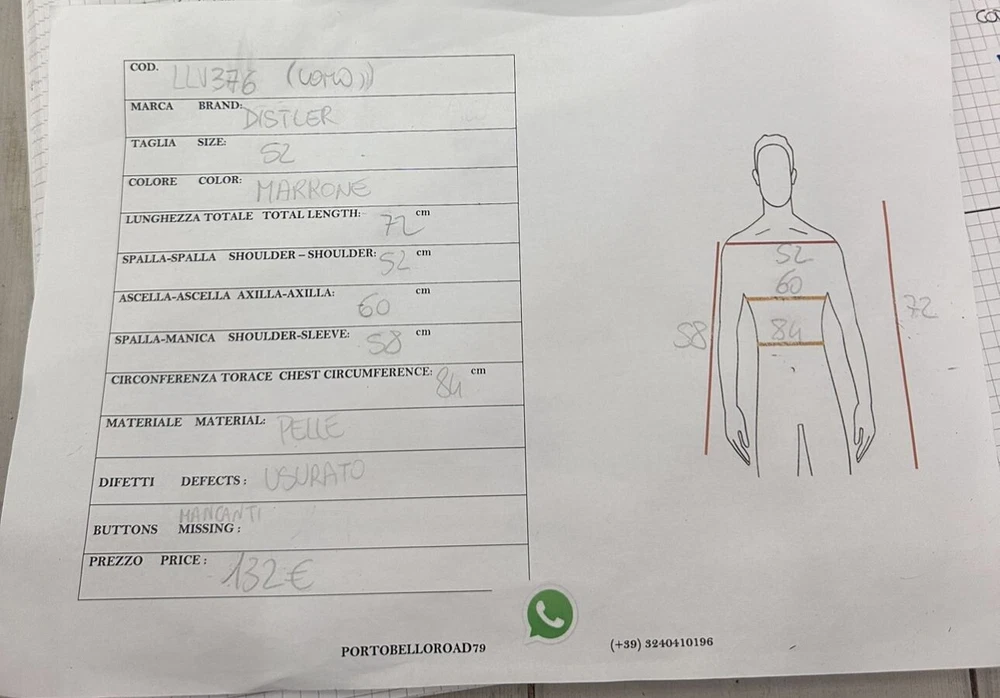 COD. LLV376 (COMO))
MARCA BRAND: DISTLER
TAGLIA SIZE: 52
COLORE COLOR: MARRONE
LUNGHEZZA TOTALE TOTAL LENGTH: 72 cm
SPALLA-SPALLA SHOULDER – SHOULDER: 52 cm
ASCELLA-ASCELLA AXILLA-AXILLA: 60 cm
SPALLA-MANICA SHOULDER-SLEEVE: 58 cm
CIRCONFERENZA TORACE CHEST CIRCUMFERENCE: 84 cm
MATERIALE MATERIAL: PELLE
DIFETTI DEFECTS: USURATO
MANCANTI
BUTTONS MISSING:
PREZZO PRICE: 132€
52
60
58
84
72
PORTOBELLOROAD79
(+39) 3240410196